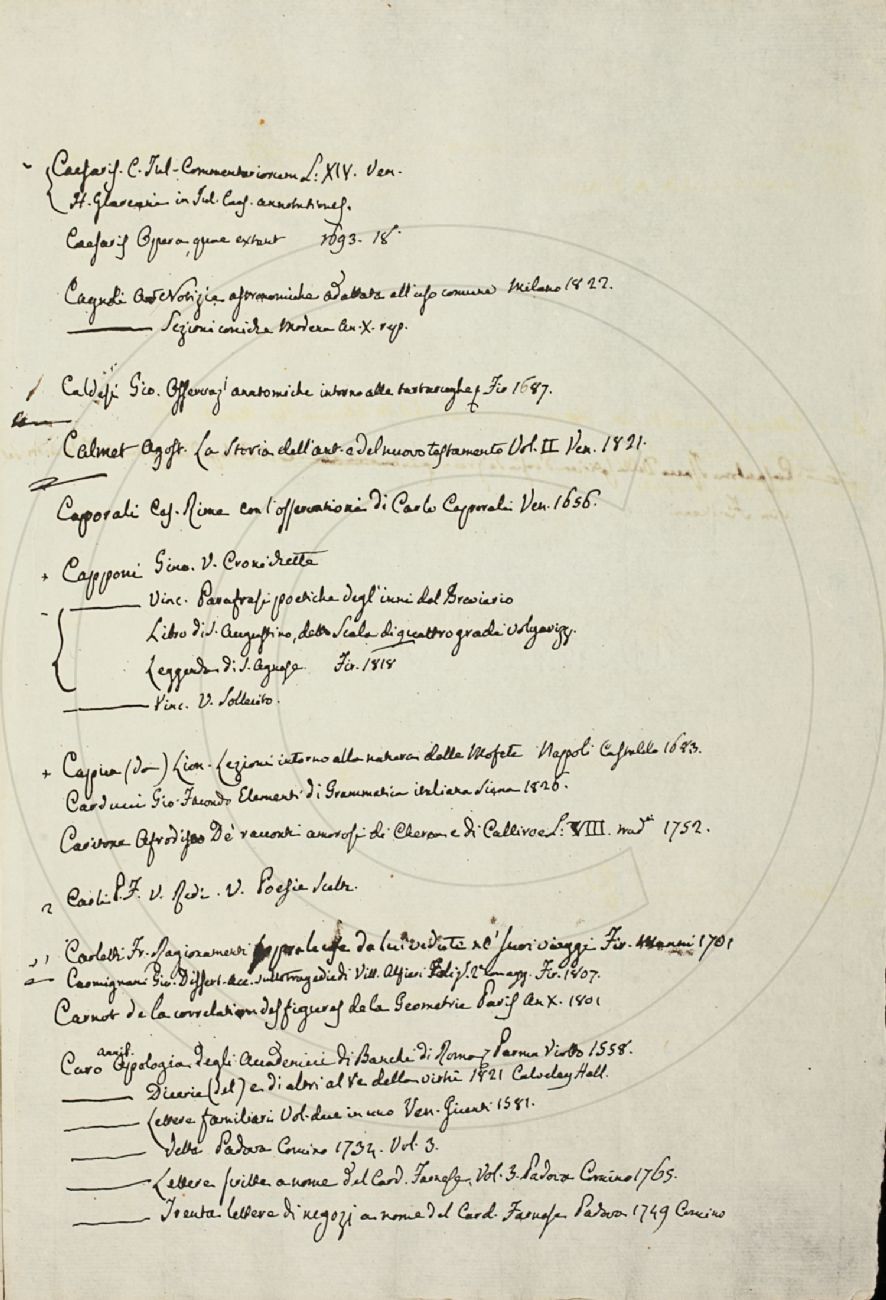 Caesaris. C. Jul- Commentariorum L: XIV. Ven.
H. Glareani in Jul. Caes. annotationes.
Caesaris Opera quae extant 1693. 18°
Cagnoli Ant Notizie astronomiche adattate all'uso comune Milano 1822.
Sezioni coniche Modena An. X. rep.
Caldesi Gio. Osservazi anatomiche intorno alle tartarughe Fir 1687.
Calmet Agost. La Storia dell'ant. e del nuovo testamento Vol. II Ven. 1821.
Caporali Ces. Rime con l'osservationi di Carlo Caporali Ven. 1656.
Capponi Gino. V. Cronichette
Vinc. Parafrasi poetiche degl'inni del Breviario
Libro di S. Augustino, detto Scala di quattro gradi volgarizz.
Leggenda di S. Agnese Fir. 1818
Vinc. V. Sollecito.
Capua (da) Lion. Lezioni intorno alla natura delle Mofete Nappoli Castaldo 1683.
Carducci Gio. Facondo Elementi di Grammatica italiana Siena 1826.
Caritone Afrodiseo De' racconti amorosi di Cherea e di Calliroe L: VIII. trad. 1752.
Carli P. F. V. Redi. V. Poesie Scelte.
Carletti Fr. Ragionamenti sopra le cose da lui vedute ne' suoi viaggi Fir. Manni 1701
Carmignani Gio. Dissert. Acc. sulle tragedie di Vitt. Alfieri Fir. 1807.
Carnot de la correlation des figures de la Geometrie Paris An X. 1801
Caro Annib. Apologia degli Accademici di Banchi di Roma Parma Viotto 1558.
Dicerie (del) e di altri al Re della virtù 1821 Calveley Hall.
Lettere familiari Vol. due in uno Ven. Giunti 1581.
dette Padova Comino 1734. Vol. 3.
Lettere scritte a nome del Card. Farnese, Vol. 3. Padova Comino 1765.
Trenta lettere di negozj a nome del Card. Farnese Padova 1749 Comino